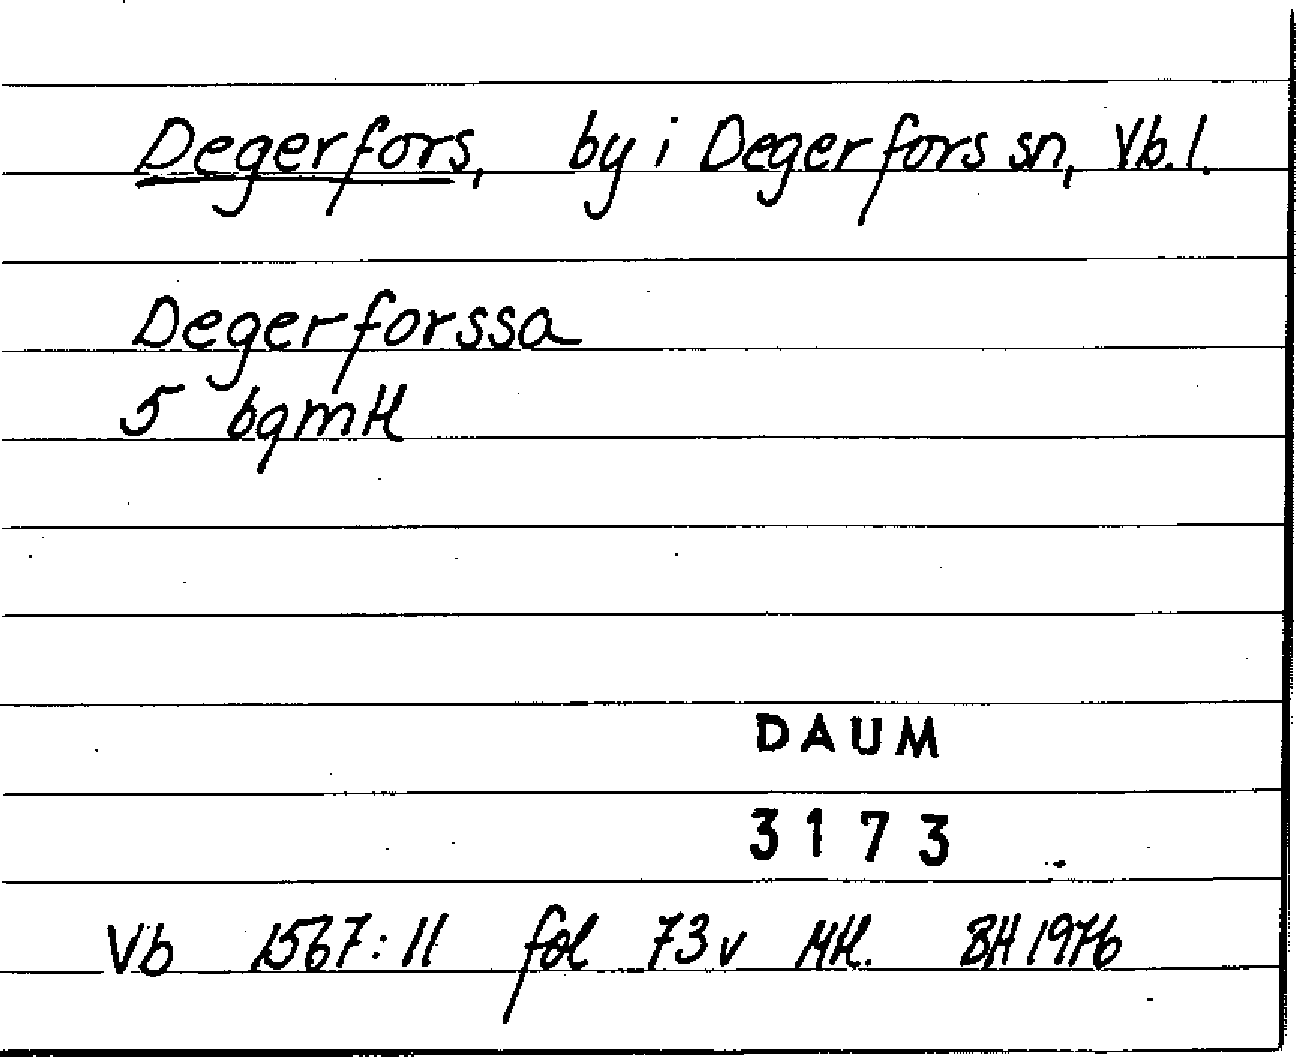 Degerfors, by i Degerfors sn, Vb. l.
Degerforssa
5 bgmtl
DAUM
3173
Vb 1567:11 fol 73v Mtl. BH 1976